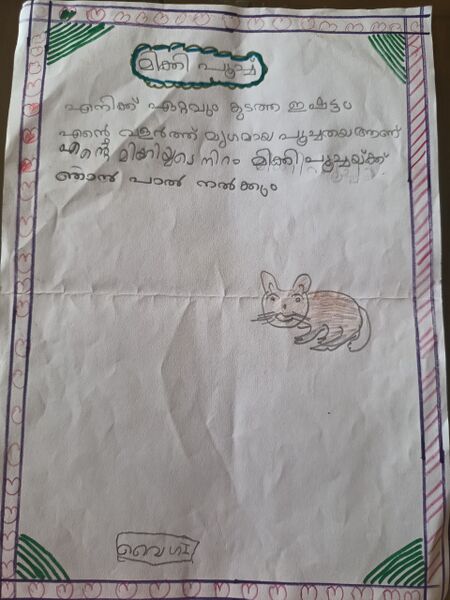 മിക്കി പൂച്ച
എനിക്ക് ഏറ്റവും കൂടത്ത ഇഷ്ടം
എൻ്റെ വളർത്ത് മൃഗമായ പൂച്ചയെആണ്
എൻ്റെ നിറം മിക്കി പൂച്ചയ്ക്ക്
ഞാൻ പാൽ നൽകും
വൈഗ